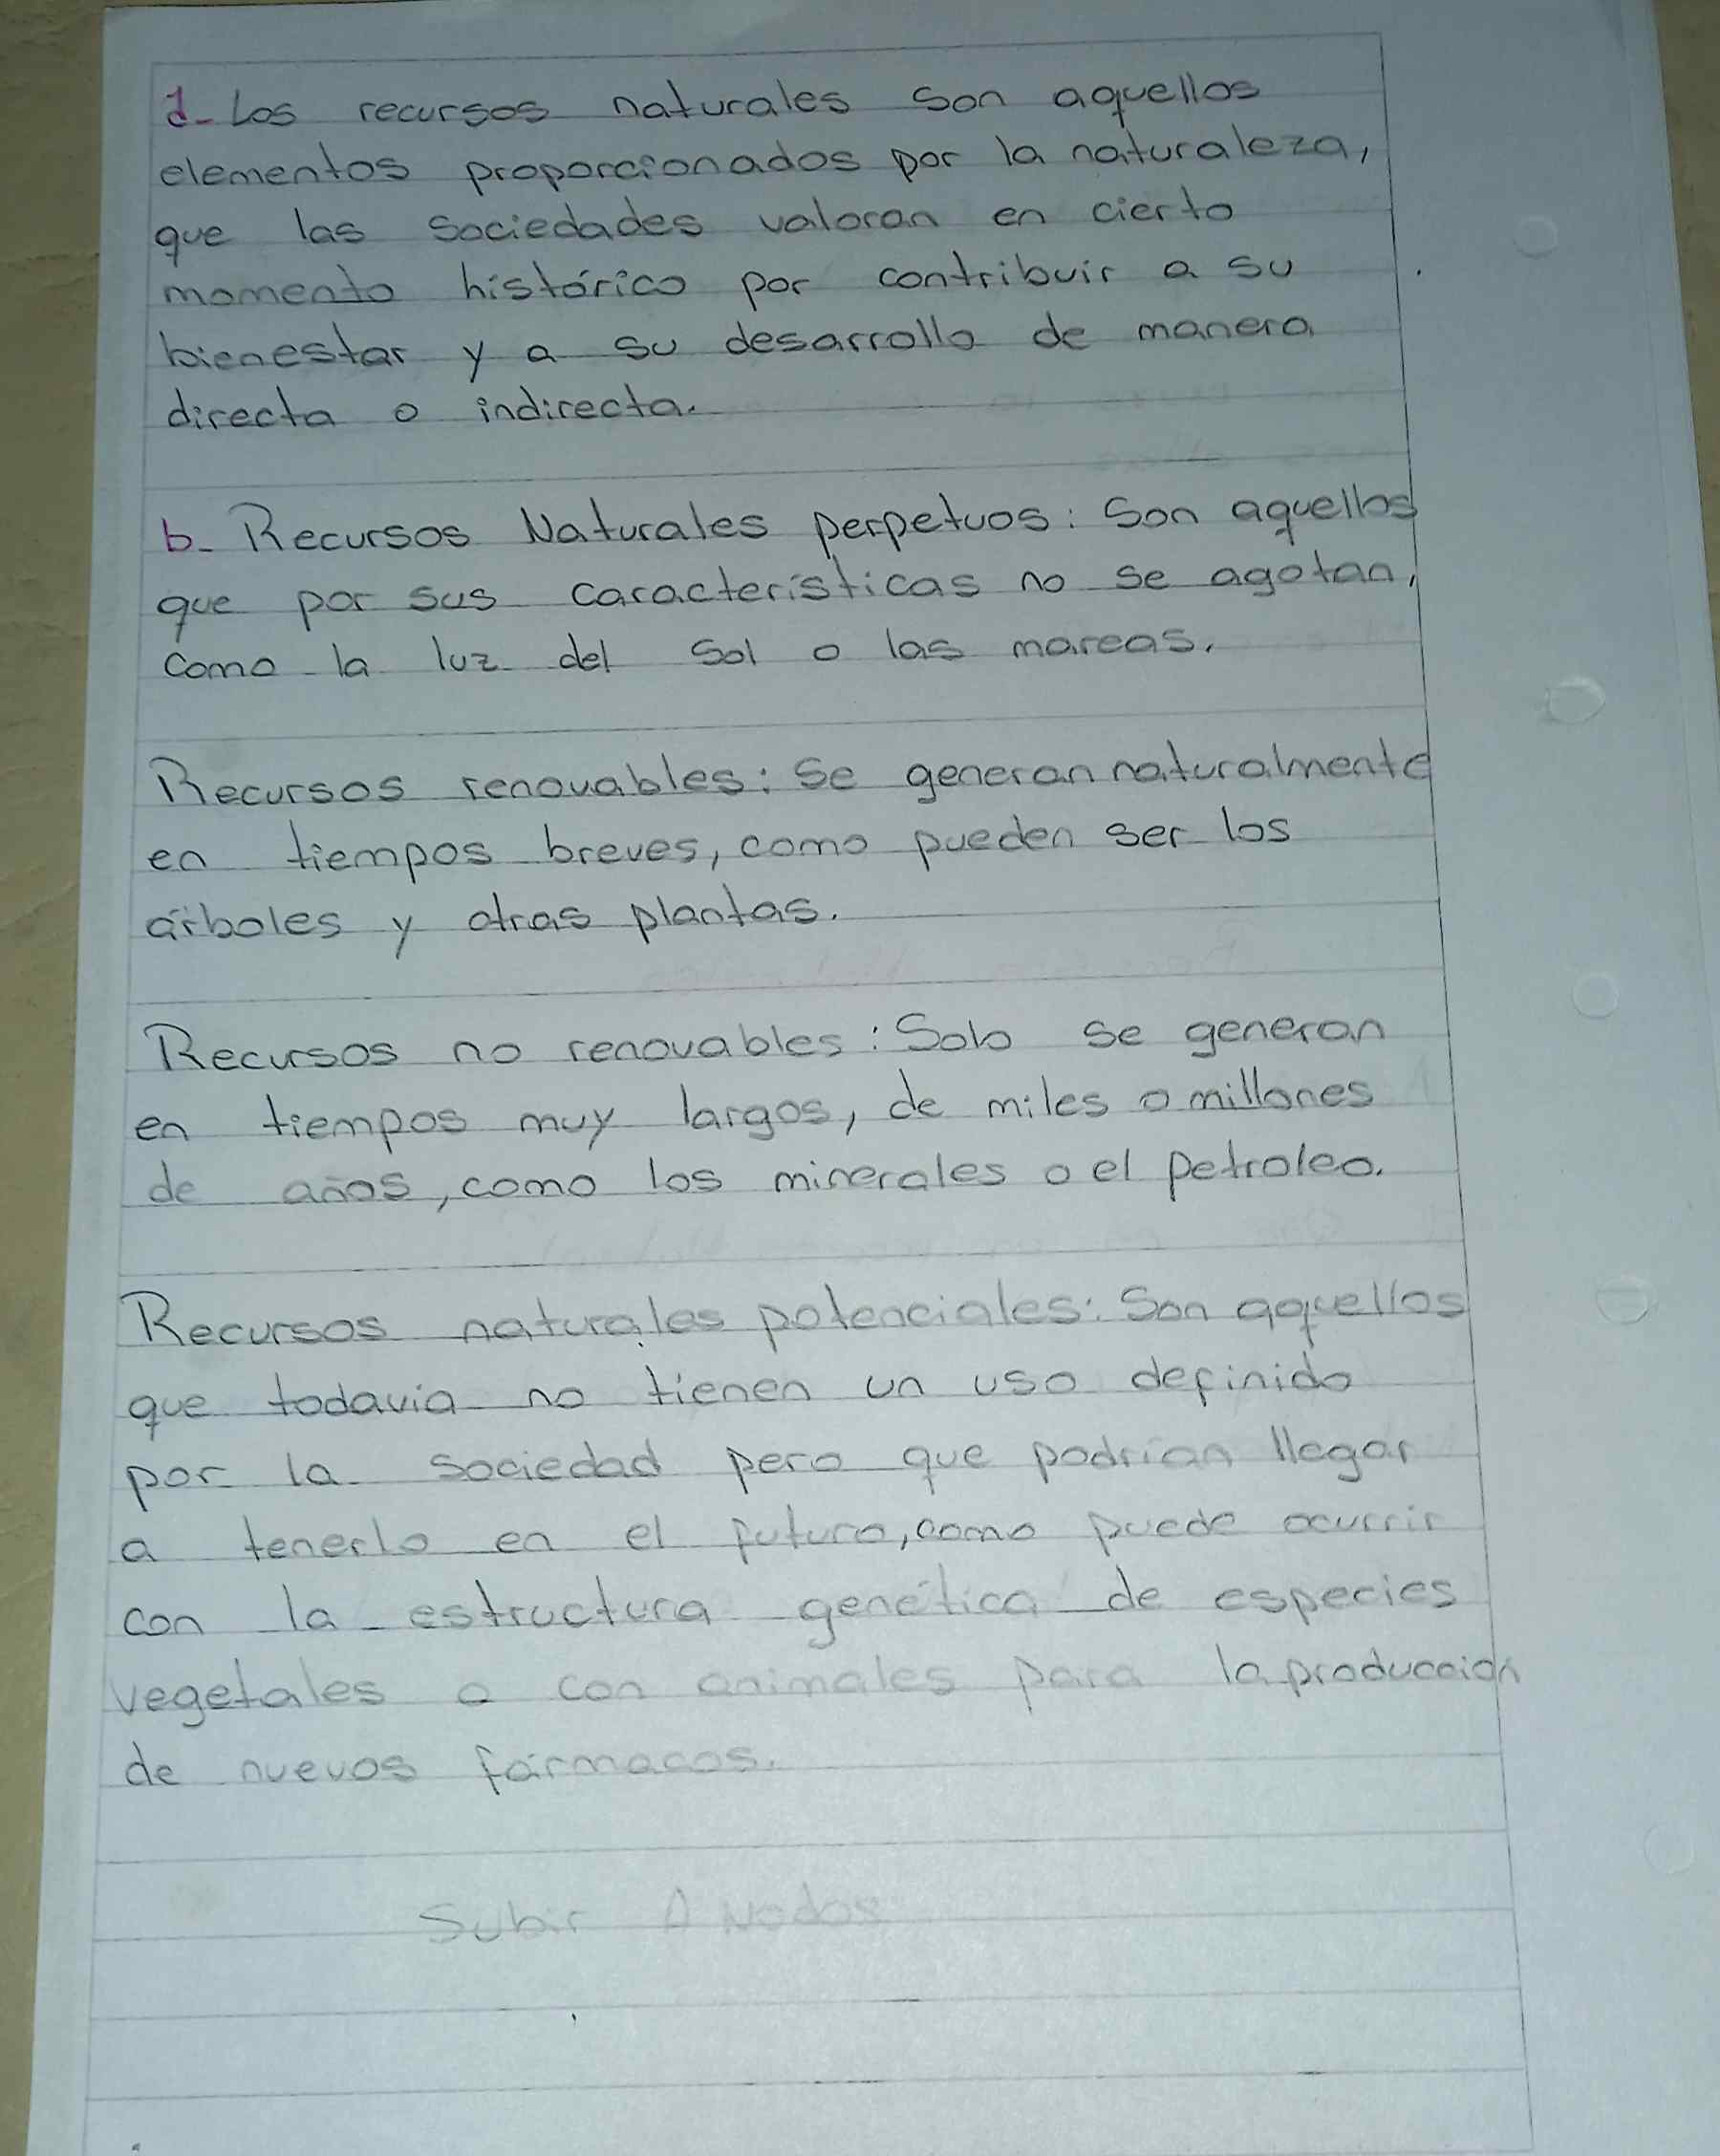 d- Los recursos naturales son aquellos
elementos proporcionados por la naturaleza,
que las sociedades valoran en cierto
momento histórico por contribuir a su
bienestar y a su desarrollo de manera
directa o indirecta.
b- Recursos Naturales perpetuos: Son aquellos
que por sus características no se agotan,
como la luz del Sol o las mareas.
Recursos renovables: Se generan naturalmente
en tiempos breves, como pueden ser los
árboles y otras plantas.
Recursos no renovables: Solo se generan
en tiempos muy largos, de miles o millones
de años, como los minerales o el petroleo.
Recursos naturales potenciales: Son aquellos
que todavia no tienen un uso definido
por la sociedad pero que podrían llegar
a tenerlo en el futuro, como puede ocurrir
con la estructura genética de especies
vegetales o con animales para la producción
de nuevos fármacos.
Subir A Nodos